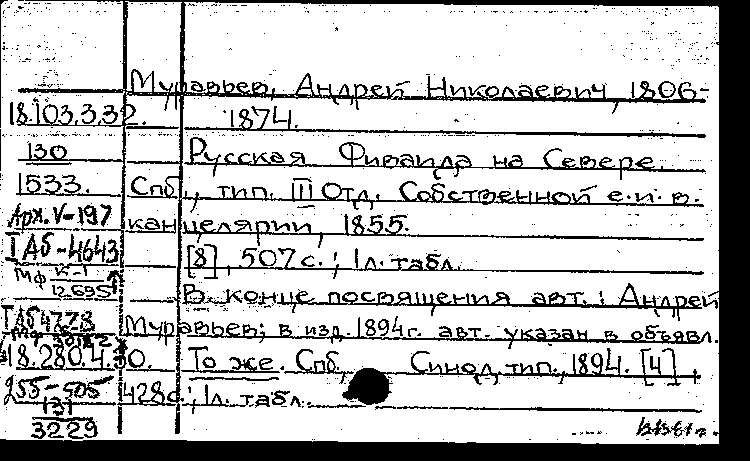 Муравьев, Андрей Николаевич, 1806-
18.103.3.32. 1874.
130 Русская Фиваида на Севере.
1533. Спб., тип. III Отд. Собственной е.и.в.
Арх. V-197 канцелярии, 1855.
I Аб-4643 [8], 507 с.; 1 л. табл.
Мф К-1
12695 В конце посвящения авт.: Андрей
I Аб4778 Муравьев; в изд. 1894г. авт. указан в объявл.
18.280.4.30. То же. Спб., Синод. тип., 1894. [4],
255-505 428с.; 1 л. табл.
131
3229